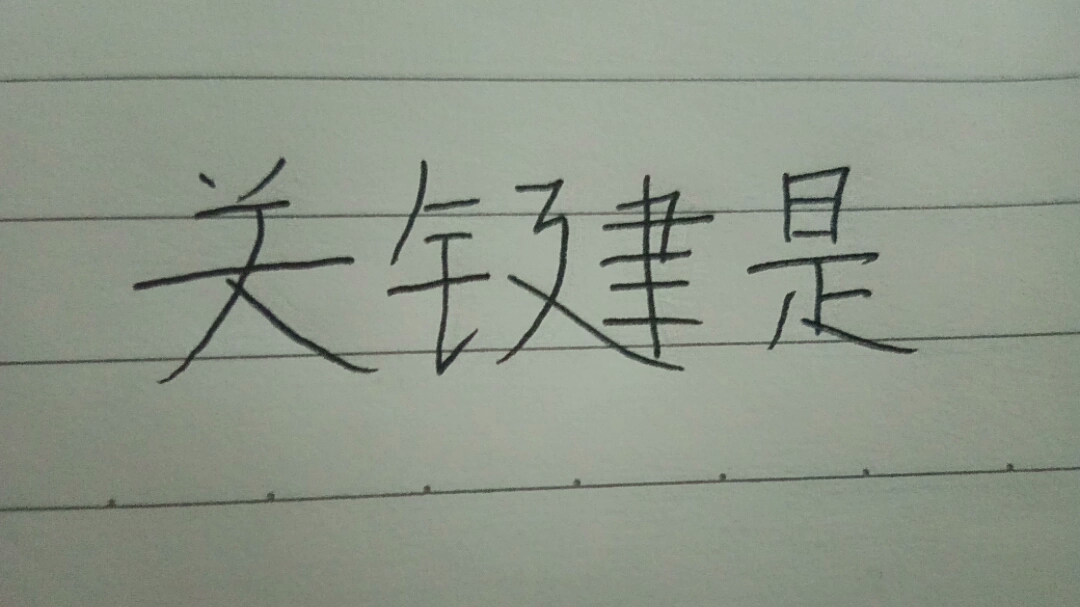 关键是